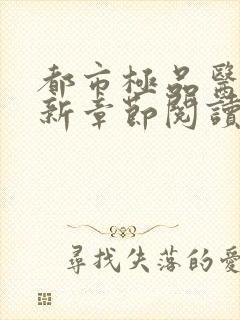 都市極品醫
新章節閱讀
尋找失落的愛